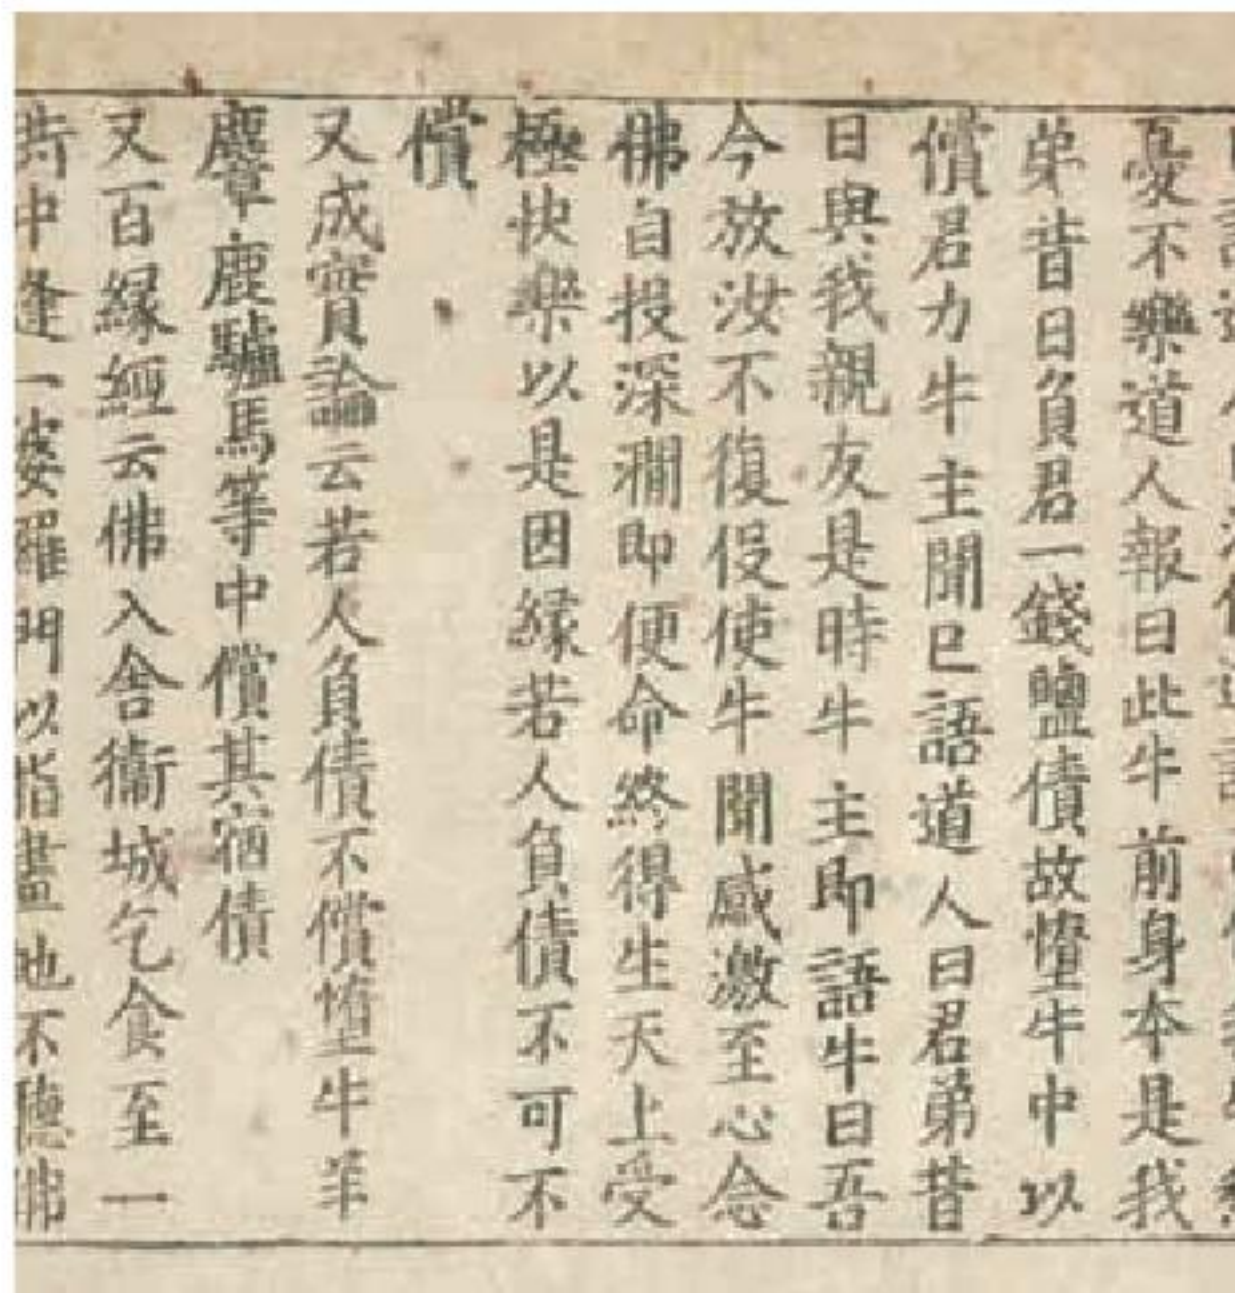 憂不樂道人報曰此牛前身本是我
弟昔日負君一錢鹽債故墮牛中以
償君力牛主聞已語道人曰君弟昔
日與我親友是時牛主即語牛曰吾
今放汝不復役使牛聞感激至心念
佛自投深澗即便命終得生天上受
極快樂以是因緣若人負債不可不
償
又成實論云若人負債不償墮牛羊
麞鹿驢馬等中償其宿債
又百緣經云佛入舍衞城乞食至一
中逢一婆羅門以指畫地不聽佛